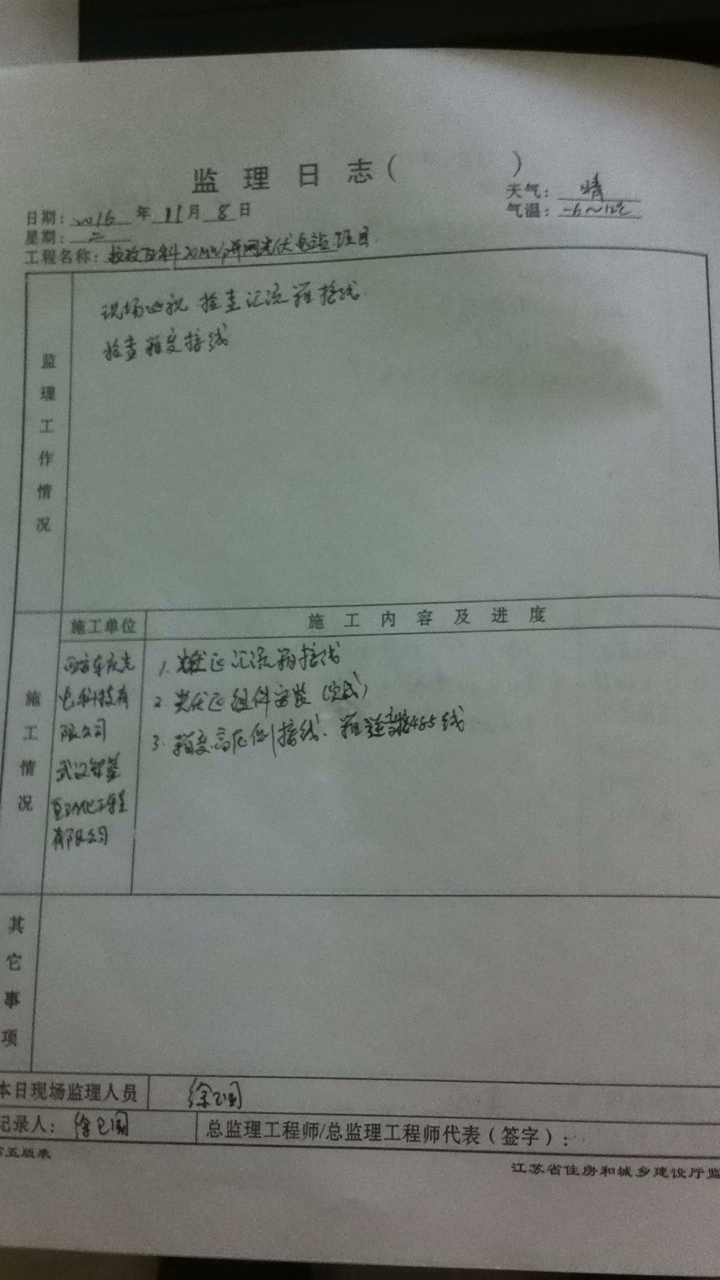 监理日志（ ）
天气：晴
日期：2016年11月8日
气温：-6～12℃
星期：二
工程名称：20MWp并网光伏电站项目
监理工作情况
现场巡视 检查汇流箱接线
检查箱变接线
施工单位
施工内容及进度
施工情况
电科技有
限公司
武汉
自动化工程
有限公司
1. 光伏区汇流箱接线
2. 光伏区组件安装（完成）
3. 箱变高压侧接线、485线
其它事项
本日现场监理人员 徐卫国
记录人：徐卫国
总监理工程师/总监理工程师代表（签字）：
五版表
江苏省住房和城乡建设厅监